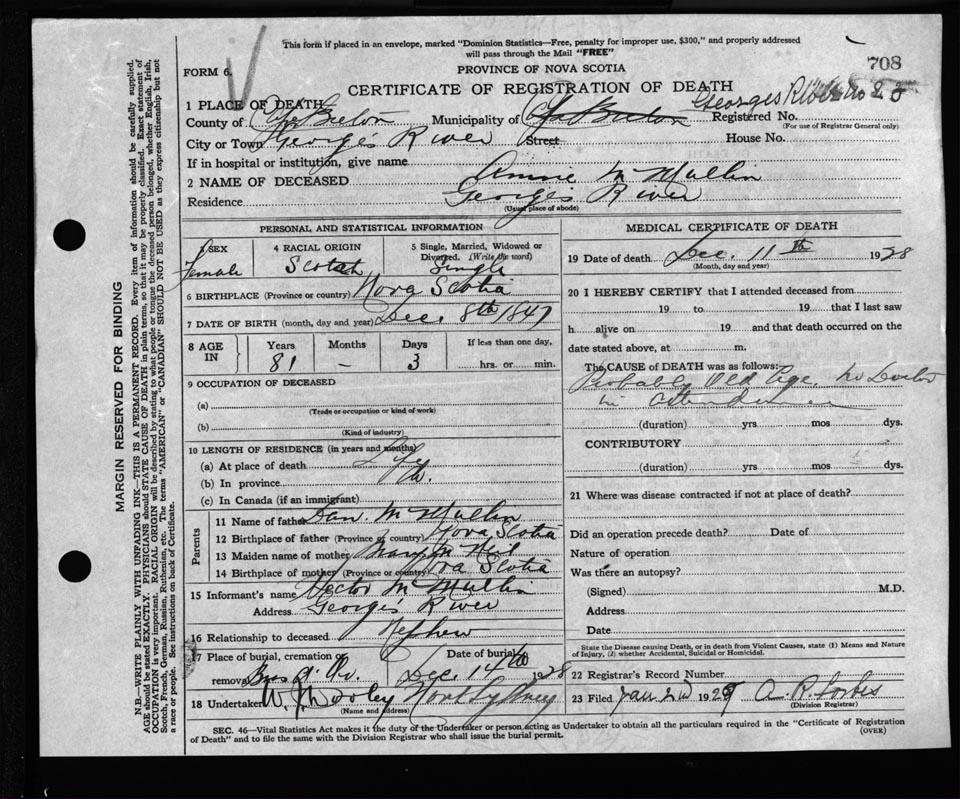 This form if placed in an envelope, marked "Dominion Statistics—Free, penalty for improper use, $300," and properly addressed
will pass through the Mail "FREE"
708
FORM 6.
PROVINCE OF NOVA SCOTIA
CERTIFICATE OF REGISTRATION OF DEATH
Georges River No 23
1 PLACE OF DEATH
County of Cape Breton Municipality of Cape Breton Registered No.
(For use of Registrar General only)
City or Town Georges River Street House No.
If in hospital or institution, give name
2 NAME OF DECEASED Annie McMullin
Residence Georges River
(Usual place of abode)
PERSONAL AND STATISTICAL INFORMATION
3 SEX Female
4 RACIAL ORIGIN Scotch
5 Single, Married, Widowed or Divorced. (Write the word) Single
6 BIRTHPLACE (Province or country) Nova Scotia
7 DATE OF BIRTH (month, day and year) Dec. 8th 1847
8 AGE IN Years 81 — Days 3 If less than one day, hrs. or min.
9 OCCUPATION OF DECEASED
(a)
(Trade or occupation or kind of work)
(b)
(Kind of industry)
10 LENGTH OF RESIDENCE (in years and months)
(a) At place of death Life
(b) In province Do.
(c) In Canada (if an immigrant)
Parents
11 Name of father Dan. McMullin
12 Birthplace of father (Province or country) Nova Scotia
13 Maiden name of mother Mary McNeil
14 Birthplace of mother (Province or country) Nova Scotia
15 Informant's name Hector McMullin
Address Georges River
16 Relationship to deceased Nephew
17 Place of burial, cremation or removal
Date of burial Dec. 14th 1928
18 Undertaker W. J. Dooley North Sydney
(Name and address)
MEDICAL CERTIFICATE OF DEATH
19 Date of death Dec. 11th 1928
(Month, day and year)
20 I HEREBY CERTIFY that I attended deceased from
19 to 19 that I last saw
h alive on 19 and that death occurred on the
date stated above, at m.
The CAUSE OF DEATH was as follows:
Probably Old Age. No Doctor
in attendance
(duration) yrs mos dys.
CONTRIBUTORY
(duration) yrs. mos. dys.
21 Where was disease contracted if not at place of death?
Did an operation precede death? Date of
Nature of operation
Was there an autopsy?
(Signed) M.D.
Address
Date
State the Disease causing Death, or in death from Violent Causes, state (1) Means and
Nature of Injury, (2) whether Accidental, Suicidal or Homicidal.
22 Registrar's Record Number
23 Filed Jan 2nd 1929 A. R. Forbes
(Division Registrar)
SEC. 46—Vital Statistics Act makes it the duty of the Undertaker or person acting as Undertaker to obtain all the particulars required in the "Certificate of Registration
of Death" and to file the same with the Division Registrar who shall issue the burial permit.
(OVER)
MARGIN RESERVED FOR BINDING
N.B.—WRITE PLAINLY WITH UNFADING INK—THIS IS A PERMANENT RECORD. Every item of information should be carefully supplied.
AGE should be stated EXACTLY. PHYSICIANS should STATE CAUSE OF DEATH in plain terms, so that it may be properly classified. Exact statement of
OCCUPATION is very important. RACIAL ORIGIN will be described by stating to what people or tongue the deceased person belonged, whether English, Irish,
Scotch, French, German, Russian, Ruthenian, etc. The terms "AMERICAN" or "CANADIAN" SHOULD NOT BE USED as they express citizenship but not
a race or people. See instructions on back of Certificate.